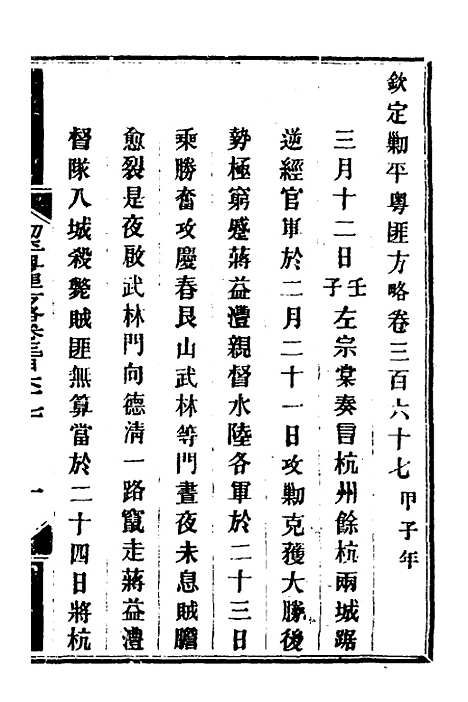 欽定勦平粵匪方略卷三百六十七 甲子年
三月十二日壬子左宗棠奏言杭州餘杭兩城踞
逆經官軍於二月二十一日攻勦克獲大勝後
勢極窮蹙蔣益灃親督水陸各軍於二十三日
乘勝奮攻慶春艮山武林等門晝夜未息賊膽
愈裂是夜啟武林門向德清一路竄走蔣益灃
督隊入城殺斃賊匪無算當於二十四日將杭